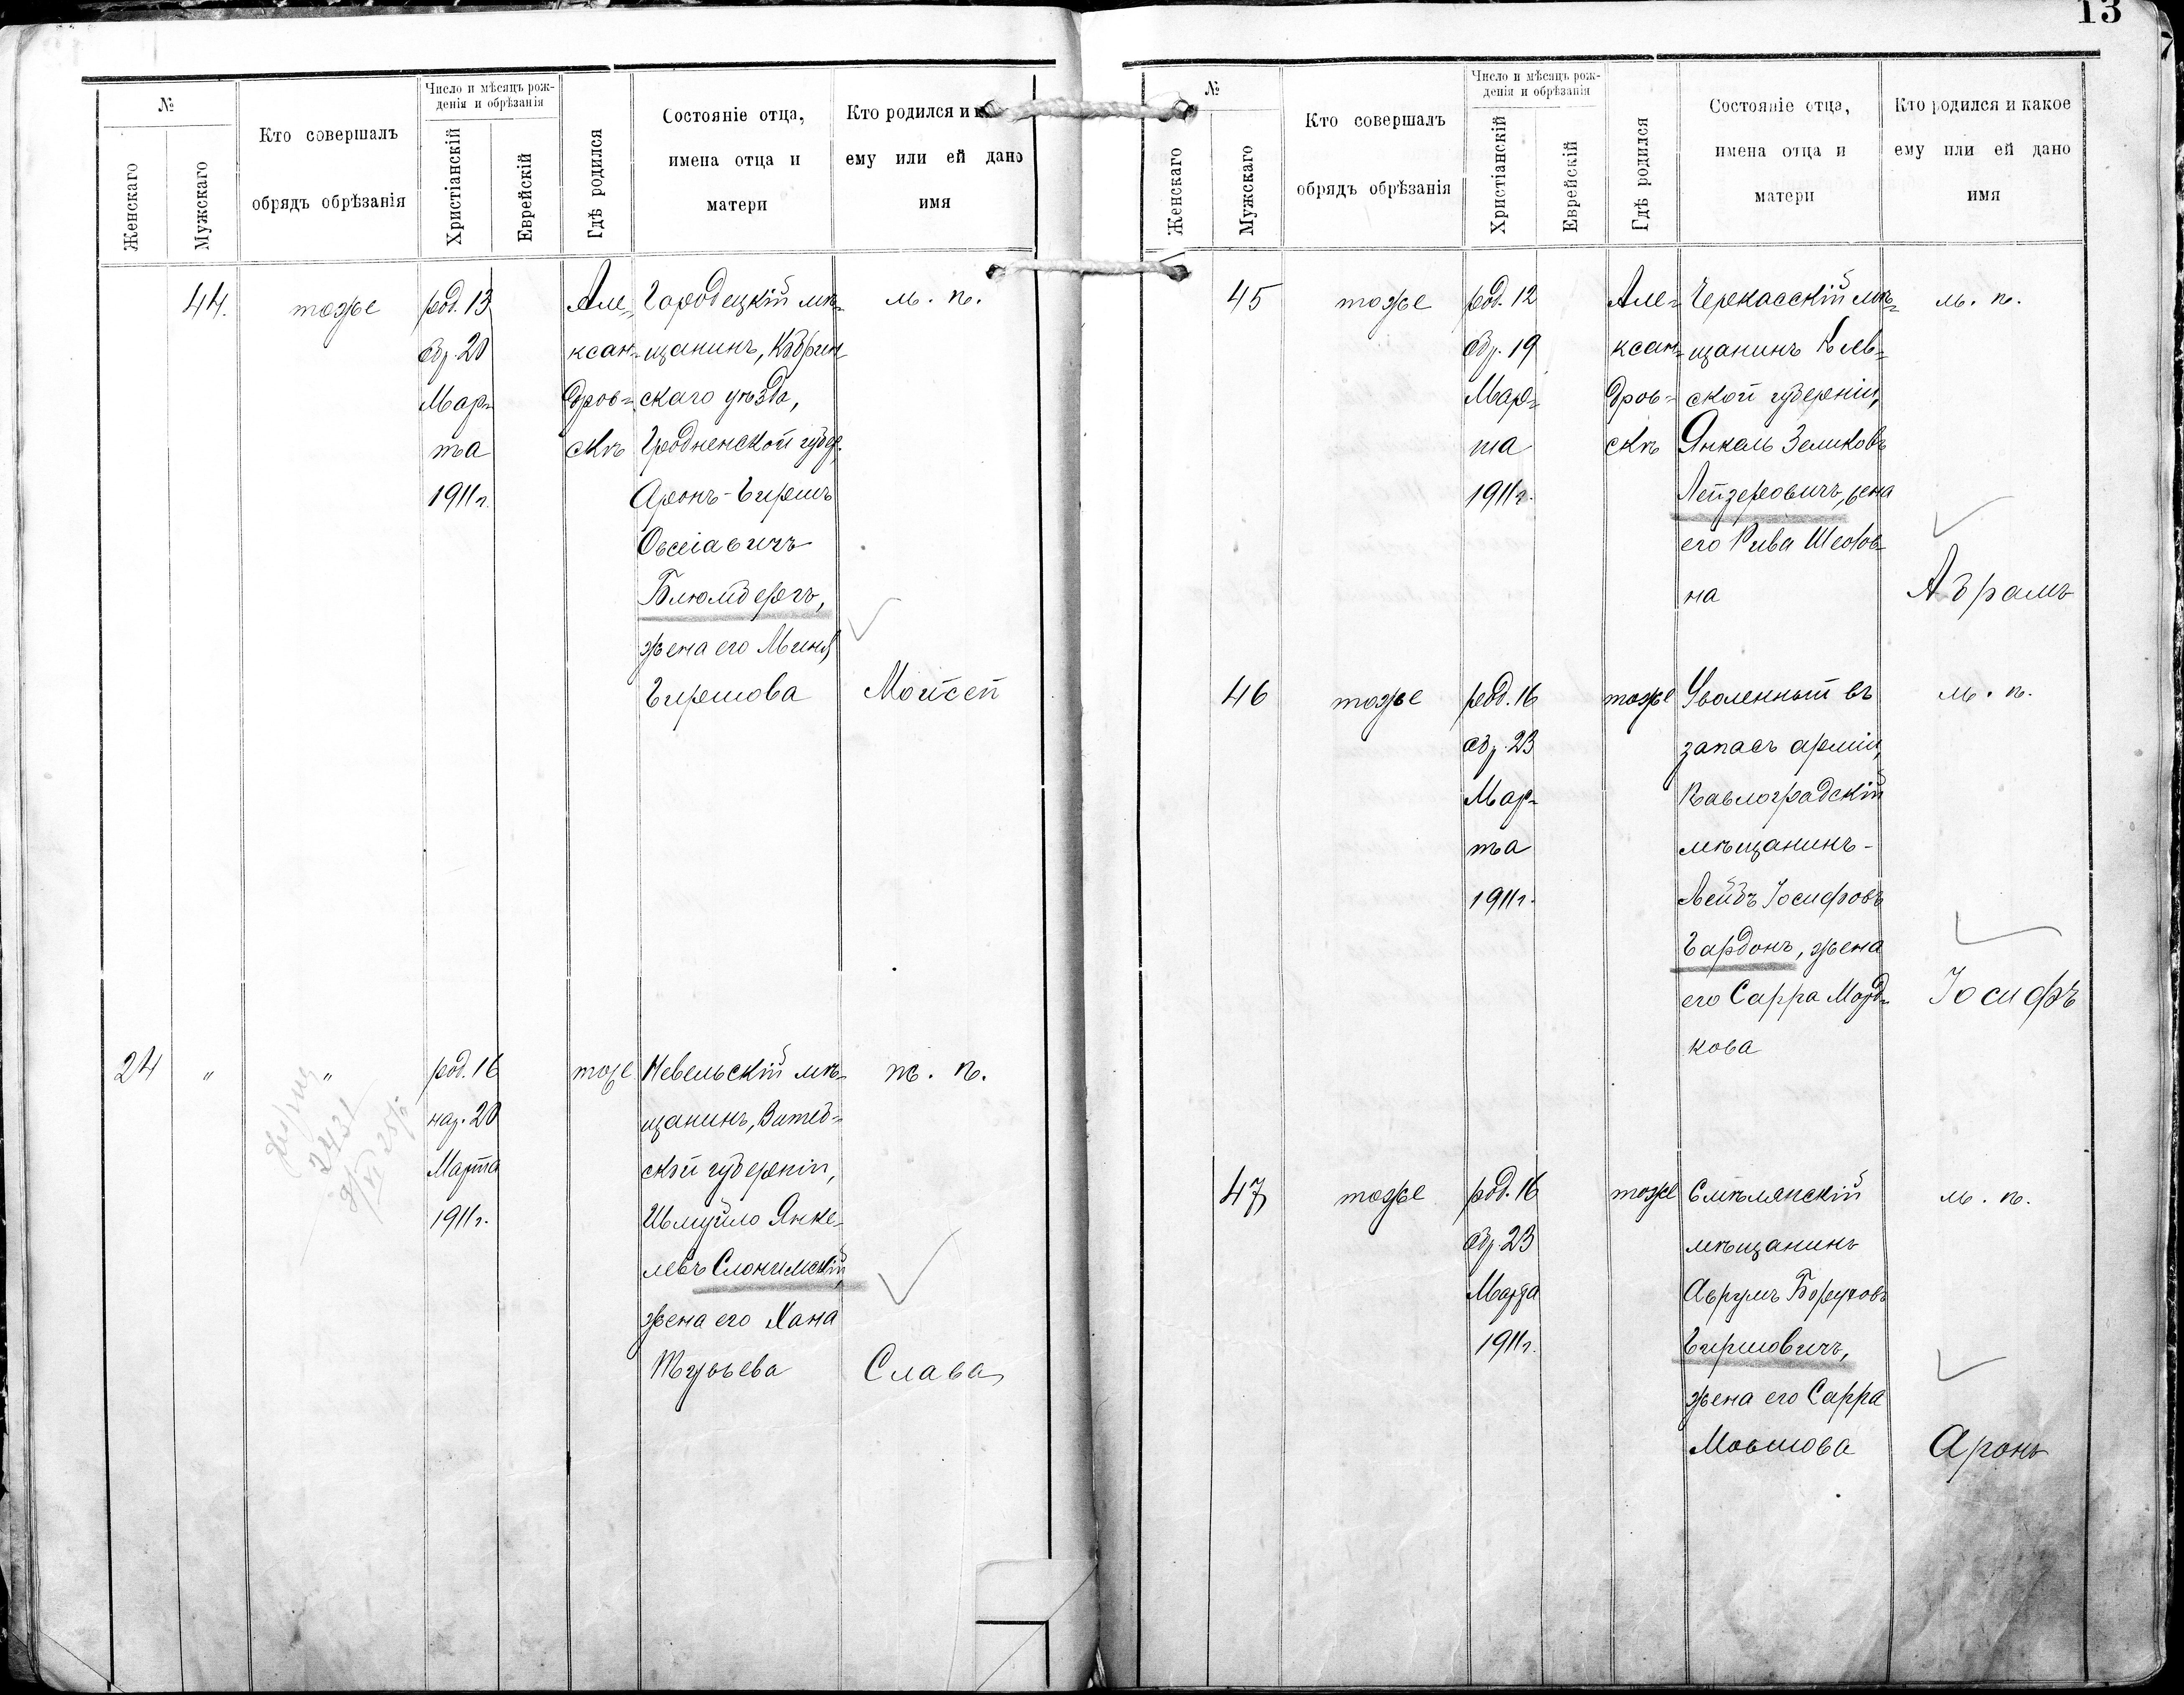 13
№
Женскаго
Мужскаго
Кто совершалъ
обрядъ обрѣзанія
Число и мѣсяцъ рож-
денія и обрѣзанія
Христіанскій
Еврейскій
Гдѣ родился
Состояніе отца,
имена отца и
матери
Кто родился и
ему или ей дано
имя
44.
тоже
род. 13
обр. 20
Мар-
та
1911 г.
Але-
ксан-
дров-
скѣ
Городецкій мѣ-
щанинъ, Кобрин
скаго уѣзда,
Гродненской губер.
Аронъ-Гиршъ
Овсеіавичъ
Блюмбергъ,
жена его Миня
Гиршова
м. п.
Мойсей
24
"
"
2431
род. 16
нар. 20
Марта
1911 г.
тоже
Невельскій мѣ-
щанинъ, Витеб-
ской губерніи,
Шмуйло Янке-
левъ Слонимскій,
жена его Хана
ж. п.
Слава
№
Женскаго
Мужскаго
Кто совершалъ
обрядъ обрѣзанія
Число и мѣсяцъ рож-
денія и обрѣзанія
Христіанскій
Еврейскій
Гдѣ родился
Состояніе отца,
имена отца и
матери
Кто родился и какое
ему или ей дано
имя
45
тоже
род. 12
обр. 19
Мар-
та
1911 г.
Але-
ксан-
дров-
скѣ
Черкасскій мѣ-
щанинъ Кіев-
ской губерніи,
Янкель Зеликовъ
Лейзеровичъ, жена
его Рива
на
м. п.
Абрамъ
46
тоже
род. 16
обр. 23
Мар-
та
1911 г.
тоже
Уволенный въ
запасъ арміи,
Павлоградскій
мѣщанинъ-
Лейбъ Іосифовъ
Гардонъ, жена
его Сарра Морд-
кова
м. п.
Іосифъ
47
тоже
род. 16
обр. 23
Марта
1911 г.
тоже
Смѣлянскій
мѣщанинъ
Аврумъ Боруховъ
Гиршовичъ,
жена его Сарра
Мовшова
м. п.
Аронъ